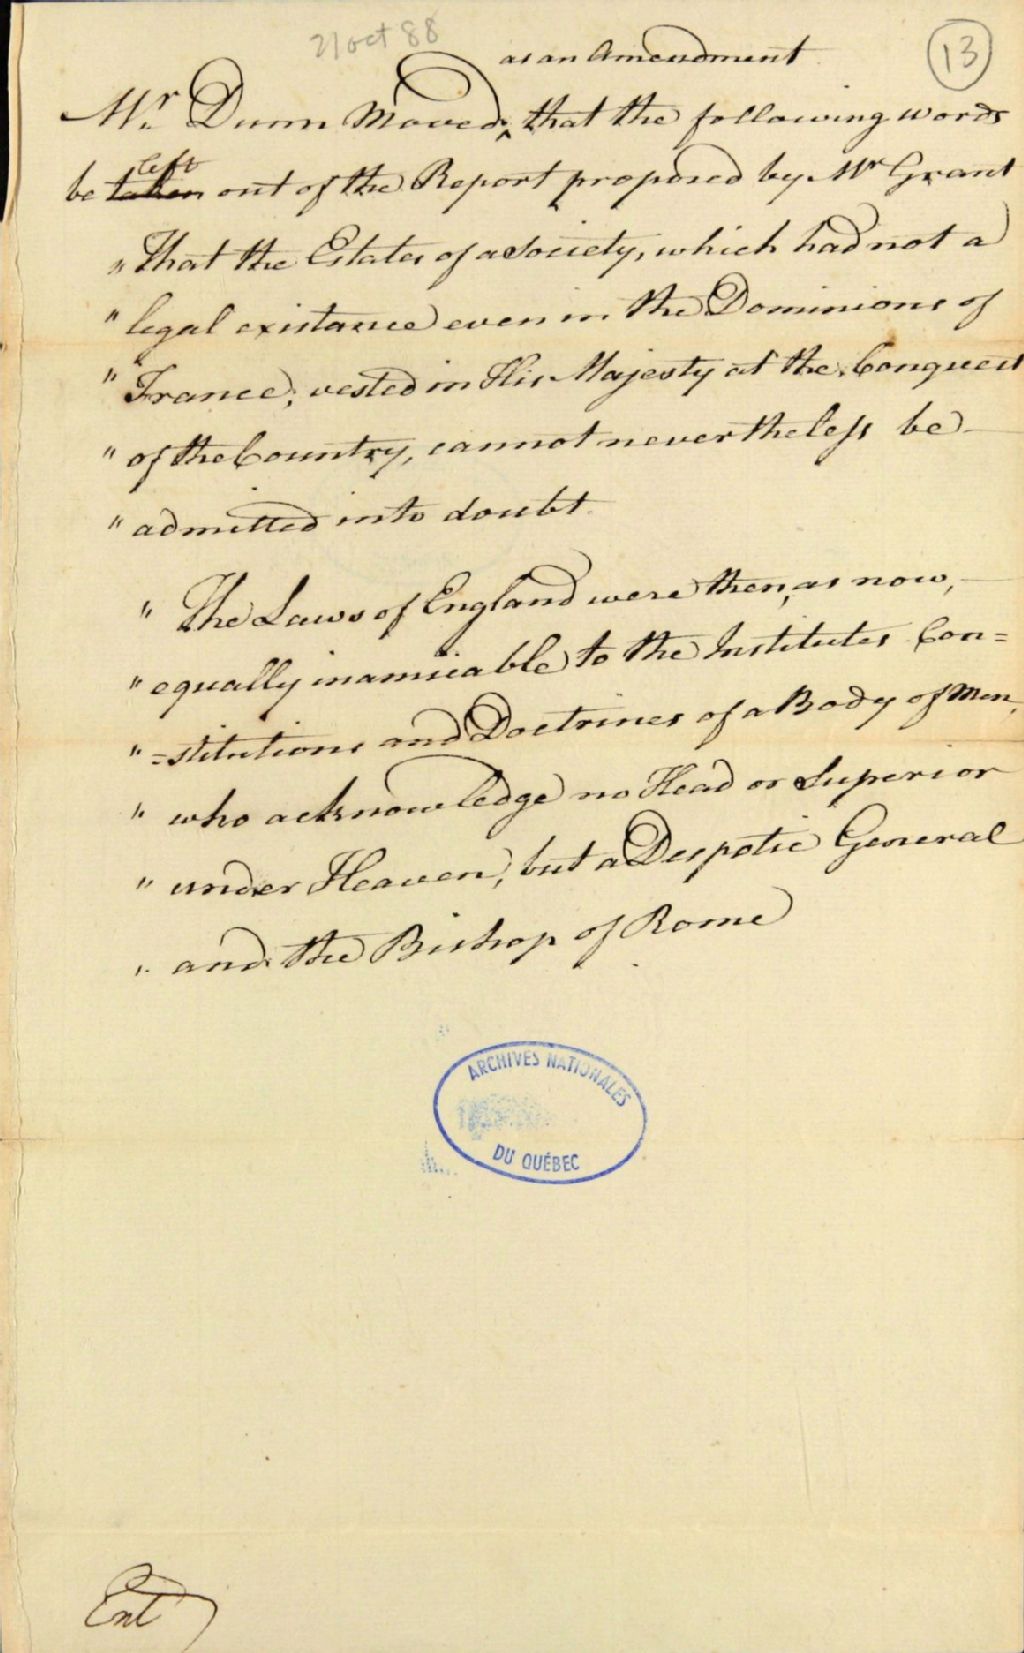 21 oct 88
13
as an Amendment
Mr Dunn Moved, that the following words
left
be taken out of the Report proposed by Mr Grant
"That the Estates of a Society, which had not a
" legal existance even in the Dominions of
" France, vested in His Majesty at the Conquest
" of the Country, cannot nevertheless be
" admitted into doubt.
" The Laws of England were then, as now,
" equally inamicable to the Institutes Con=
" =stitutions and Doctrines of a Body of Men,
" who acknowledge no Head or Superior
" under Heaven, but a Despotic General
" and the Bishop of Rome
ARCHIVES NATIONALES
DU QUÉBEC
Ent